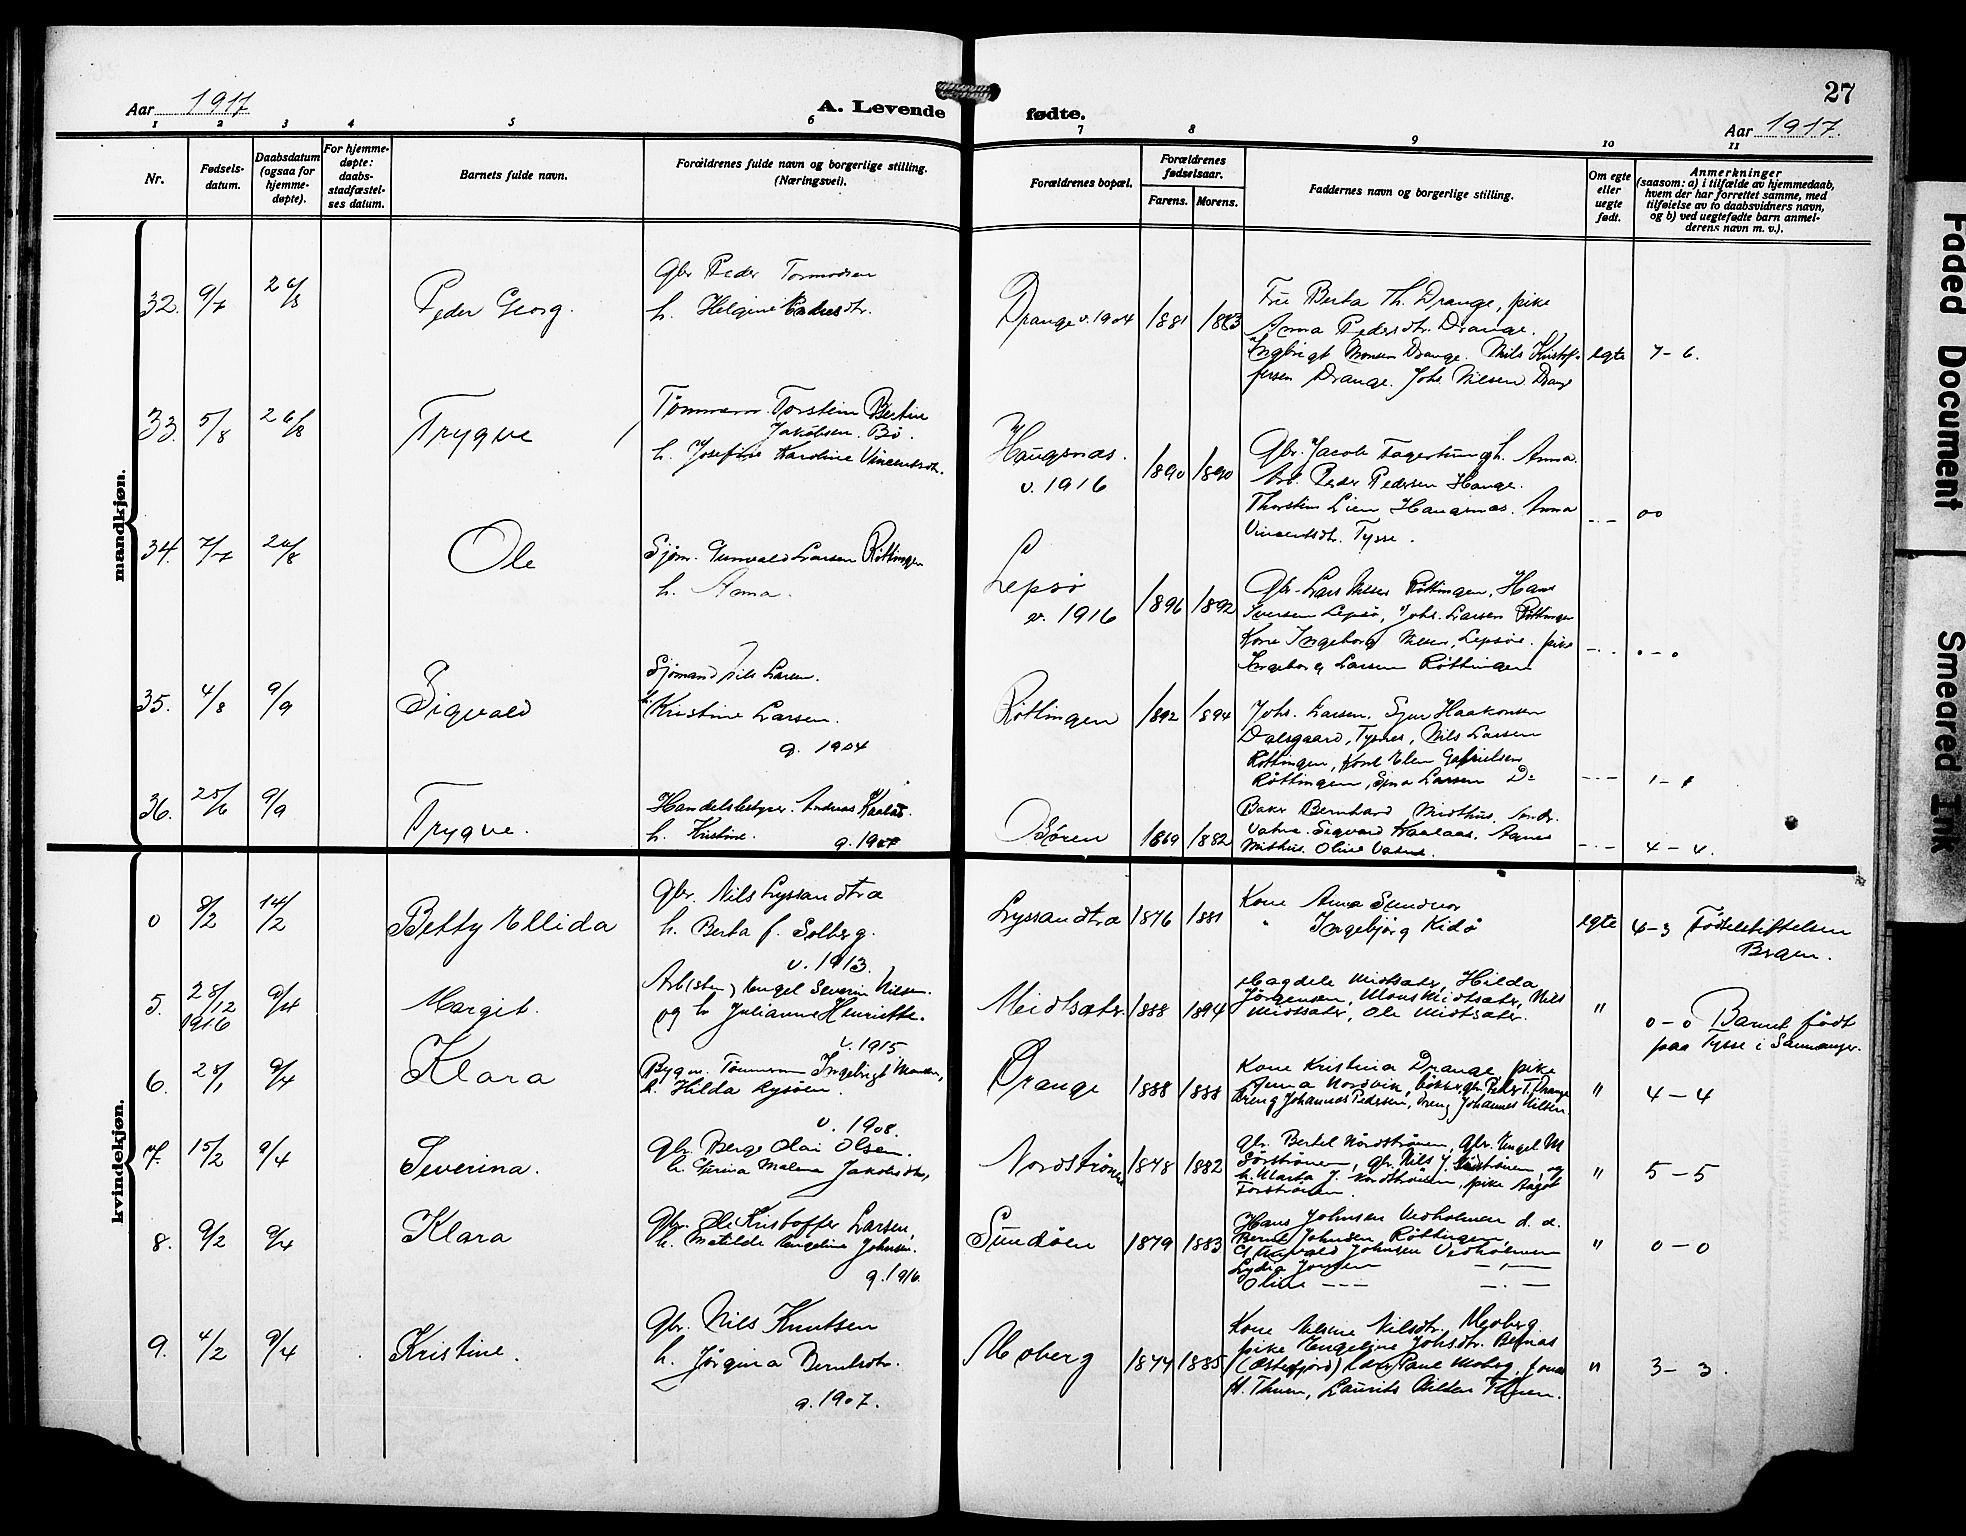 27
Aar 1917
A. Levende fødte.
Aar 1917.
1 2 3 4 5 6 7 8 9 10 11
Nr.
Fødsels-
datum.
Daabsdatum
(ogsaa for
hjemme-
døpte).
For hjemme-
døpte:
daabs-
stadfæstel-
ses datum.
Barnets fulde navn.
Forældrenes fulde navn og borgerlige stilling.
(Næringsvei).
Forældrenes bopæl.
Forældrenes
fødselsaar.
Farens. Morens.
Faddernes navn og borgerlige stilling.
Om egte
eller
uegte
født.
Anmerkninger
(saasom: a) i tilfælde av hjemmedaab,
hvem der har forrettet samme, med
tilføielse av to daabsvidners navn,
og b) ved uegtefødte barn anmel-
derens navn m. v.).
mandkjøn.
32. 9/7 26/8 Peder Georg.
Gbr Peder Tormodsen
h. Helgine
Drange v. 1904 1881 1883
Frue Berta Th. Drange, pike
Anna Pedersdtr. Drange.
Ingbrigt Monsen Drange. Nils Kristof-
fersen Drange. Johs. Nilsen Drange
egte 7-6.
33. 5/8 26/8 Trygve
Tømmerm. Torstein Bertin
Jakobsen Bø.
h. Josefine Karoline Vincentsdtr.
Haugsnas.
v. 1916 1890 1890
Gbr. Jacob h. Anna.
Arb. Peder Pedersen Hauge.
Thorstein Lien Haugsnas. Anna
Vincentsdtr. Tysse.
-.- 00
34. 7/7 26/8 Ole
Sjøm. Gunvald Larsen Røttingen
h. Anna.
Lepsø
v. 1916 1896 1892
Gbr. Lars Nilsen Røttingen, Hans
Iversen Lepsø, Johs. Larsen Røttingen
Kone Ingeborg Nilsen, Lepsøe. pike
Ingeborg Larsen Røttingen
-.- 0-0
35. 4/8 9/9 Sigvald
Sjømand Nils Larsen.
h. Kristine Larsen.
g. 1904
Røttingen 1892 1894
Johs. Larsen. Sjur Haakonsen
Dalsgaard, Tysnes, Nils Larsen
Røttingen, Kone Elen Gabrielsen
Røttingen, Sina Larsen Do
-.- 1-1
36. 25/6 9/9 Trygve.
Handelsbetyrer. Andreas Kaalås.
h. Kristine. g. 1907
Øøren 1869 1882
Baker Bernhard Midthus. Andr.
Sigvard Kaalaas. Agnes
Midthus. Olive
-.- 4-4.
kvindekjøn.
0 8/2 14/2 Betty Ellida
Gbr. Nils Lyssandtræ
h. Berta f. Solberg.
v. 1913.
Lyssandtræ 1876 1881
Kone Anna Sundvor
" Ingebjørg Kidø
egte 4-3 Fødselstiftelsen
Brgen.
5. 28/12 1916 9/4 Margit.
Arb(sten) Engel Severin Nilsen.
og h Julianne Henriette.
v. 1915
Midtsæter 1888 1894
Magdele Midtsæter, Hilda
Jørgensen, Mons Midtsæter, Nils
Midtsæter, Ole Midtsæter.
" 0-0 Barnet født
paa Tysse i Samnanger.
6. 28/1 9/4 Klara
Bygm. Tømmerm Ingebrigt Monsen,
h. Hilda Rysøen.
v. 1908.
Drange 1888 1888
Kone Kristina Drange, pike
Anna Nordvik, bøkker, gbr. Peder T. Drange
dreng Johannes Pedersen, dreng Johannes Nilsen
" 4-4
7. 15/2 9/4 Severina.
Gbr. Berge Olai Olsen.
h. Malena Jakobsdtr,
Nordstrøno 1878 1882
Gbr. Bertel Nordstrønen, Gbr. Engel M
Sørstrønen, gbr. Nils J. Nordstrønen, og
h. Marta J. Nordstrønen, pike Aagot
Forstrønen.
" 5-5
8. 9/2 9/4 Klara
Gbr. Ole Kristoffer Larsen,
h. Matilde Engeline Johnsen.
g. 1916.
Sundøen 1879 1883
Hans Johnsen Vedholmen d. æ.
Bernt Johnsen Røttingen,
Johnsen Vedholmen
Lydia -.-
Oline --- -.-
" 0-0
9. 4/2 9/4 Kristine.
Gbr. Nils Knutsen
h. Jørgina Berntsdtr.
g. 1907.
Moberg 1877 1885
Kone Nilsine Nilsdtr. Moberg.
pike Engeline Johsdtr. Bernæs
(Østefjord) Paul Moberg, Jonas
H. Thuen, Laurits Nilsen Thuen.
" 3-3.
Faded Document
Smeared Ink